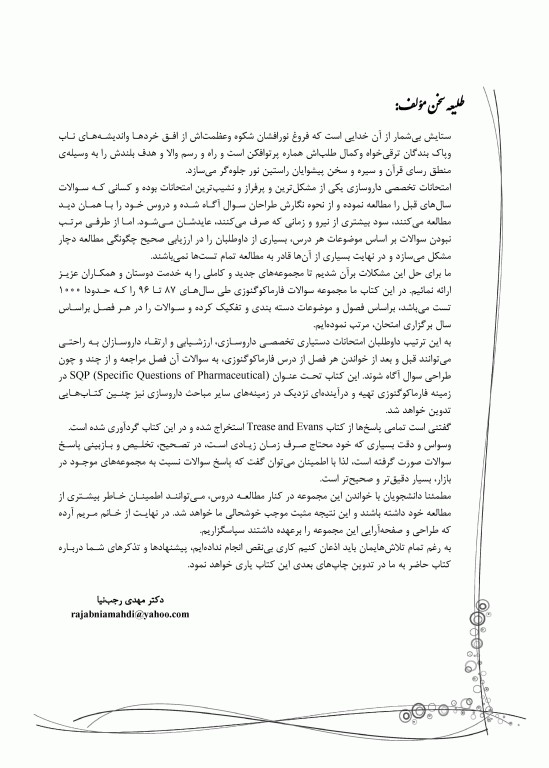 طلیعه سخن مؤلف:
ستایش بی‌شمار از آن خدایی است که فروغ نورافشان شکوه وعظمت‌اش از افق خردها واندیشه‌های ناب
وپاک بندگان ترقی‌خواه وکمال طلب‌اش هماره پرتوافکن است و راه و رسم والا و هدف بلندش را به وسیله‌ی
منطق رسای قرآن و سیره و سخن پیشوایان راستین نور جلوه‌گر می‌سازد.
امتحانات تخصصی داروسازی یکی از مشکل‌ترین و پرفراز و نشیب‌ترین امتحانات بوده و کسانی که سوالات
سال‌های قبل را مطالعه نموده و از نحوه نگارش طراحان سوال آگاه شده و دروس خود را با همان دید
مطالعه می‌کنند، سود بیشتری از نیرو و زمانی که صرف می‌کنند، عایدشان می‌شود. اما از طرفی مرتب
نبودن سوالات بر اساس موضوعات هر درس، بسیاری از داوطلبان را در ارزیابی صحیح چگونگی مطالعه دچار
مشکل می‌سازد و در نهایت بسیاری از آن‌ها قادر به مطالعه تمام تست‌ها نمی‌باشند.
ما برای حل این مشکلات برآن شدیم تا مجموعه‌های جدید و کاملی را به خدمت دوستان و همکاران عزیز
ارائه نمائیم. در این کتاب ما مجموعه سوالات فارماکوگنوزی طی سال‌های ۸۷ تا ۹۶ را که حدودا ۱۰۰۰
تست می‌باشد، براساس فصول و موضوعات دسته بندی و تفکیک کرده و سوالات را در هر فصل براساس
سال برگزاری امتحان، مرتب نموده‌ایم.
به این ترتیب داوطلبان امتحانات دستیاری تخصصی داروسازی، ارزشیابی و ارتقاء داروسازان به راحتی
می‌توانند قبل و بعد از خواندن هر فصل از درس فارماکوگنوزی، به سوالات آن فصل مراجعه و از چند و چون
طراحی سوال آگاه شوند. این کتاب تحت عنوان SQP (Specific Questions of Pharmaceutical) در
زمینه فارماکوگنوزی تهیه و درآینده‌ای نزدیک در زمینه‌های سایر مباحث داروسازی نیز چنین کتاب‌هایی
تدوین خواهد شد.
گفتنی است تمامی پاسخ‌ها از کتاب Trease and Evans استخراج شده و در این کتاب گردآوری شده است.
وسواس و دقت بسیاری که خود محتاج صرف زمان زیادی است، در تصحیح، تخلیص و بازبینی پاسخ
سوالات صورت گرفته است، لذا با اطمینان می‌توان گفت که پاسخ سوالات نسبت به مجموعه‌های موجود در
بازار، بسیار دقیق‌تر و صحیح‌تر است.
مطمئنا دانشجویان با خواندن این مجموعه در کنار مطالعه دروس، می‌توانند اطمینان خاطر بیشتری از
مطالعه خود داشته باشند و این نتیجه مثبت موجب خوشحالی ما خواهد شد. در نهایت از خانم مریم آرده
که طراحی و صفحه‌آرایی این مجموعه را برعهده داشتند سپاسگزاریم.
به رغم تمام تلاش‌هایمان باید اذعان کنیم کاری بی‌نقص انجام نداده‌ایم، پیشنهادها و تذکرهای شما درباره
کتاب حاضر به ما در تدوین چاپ‌های بعدی این کتاب یاری خواهد نمود.
دکتر مهدی رجب‌نیا
rajabniamahdi@yahoo.com